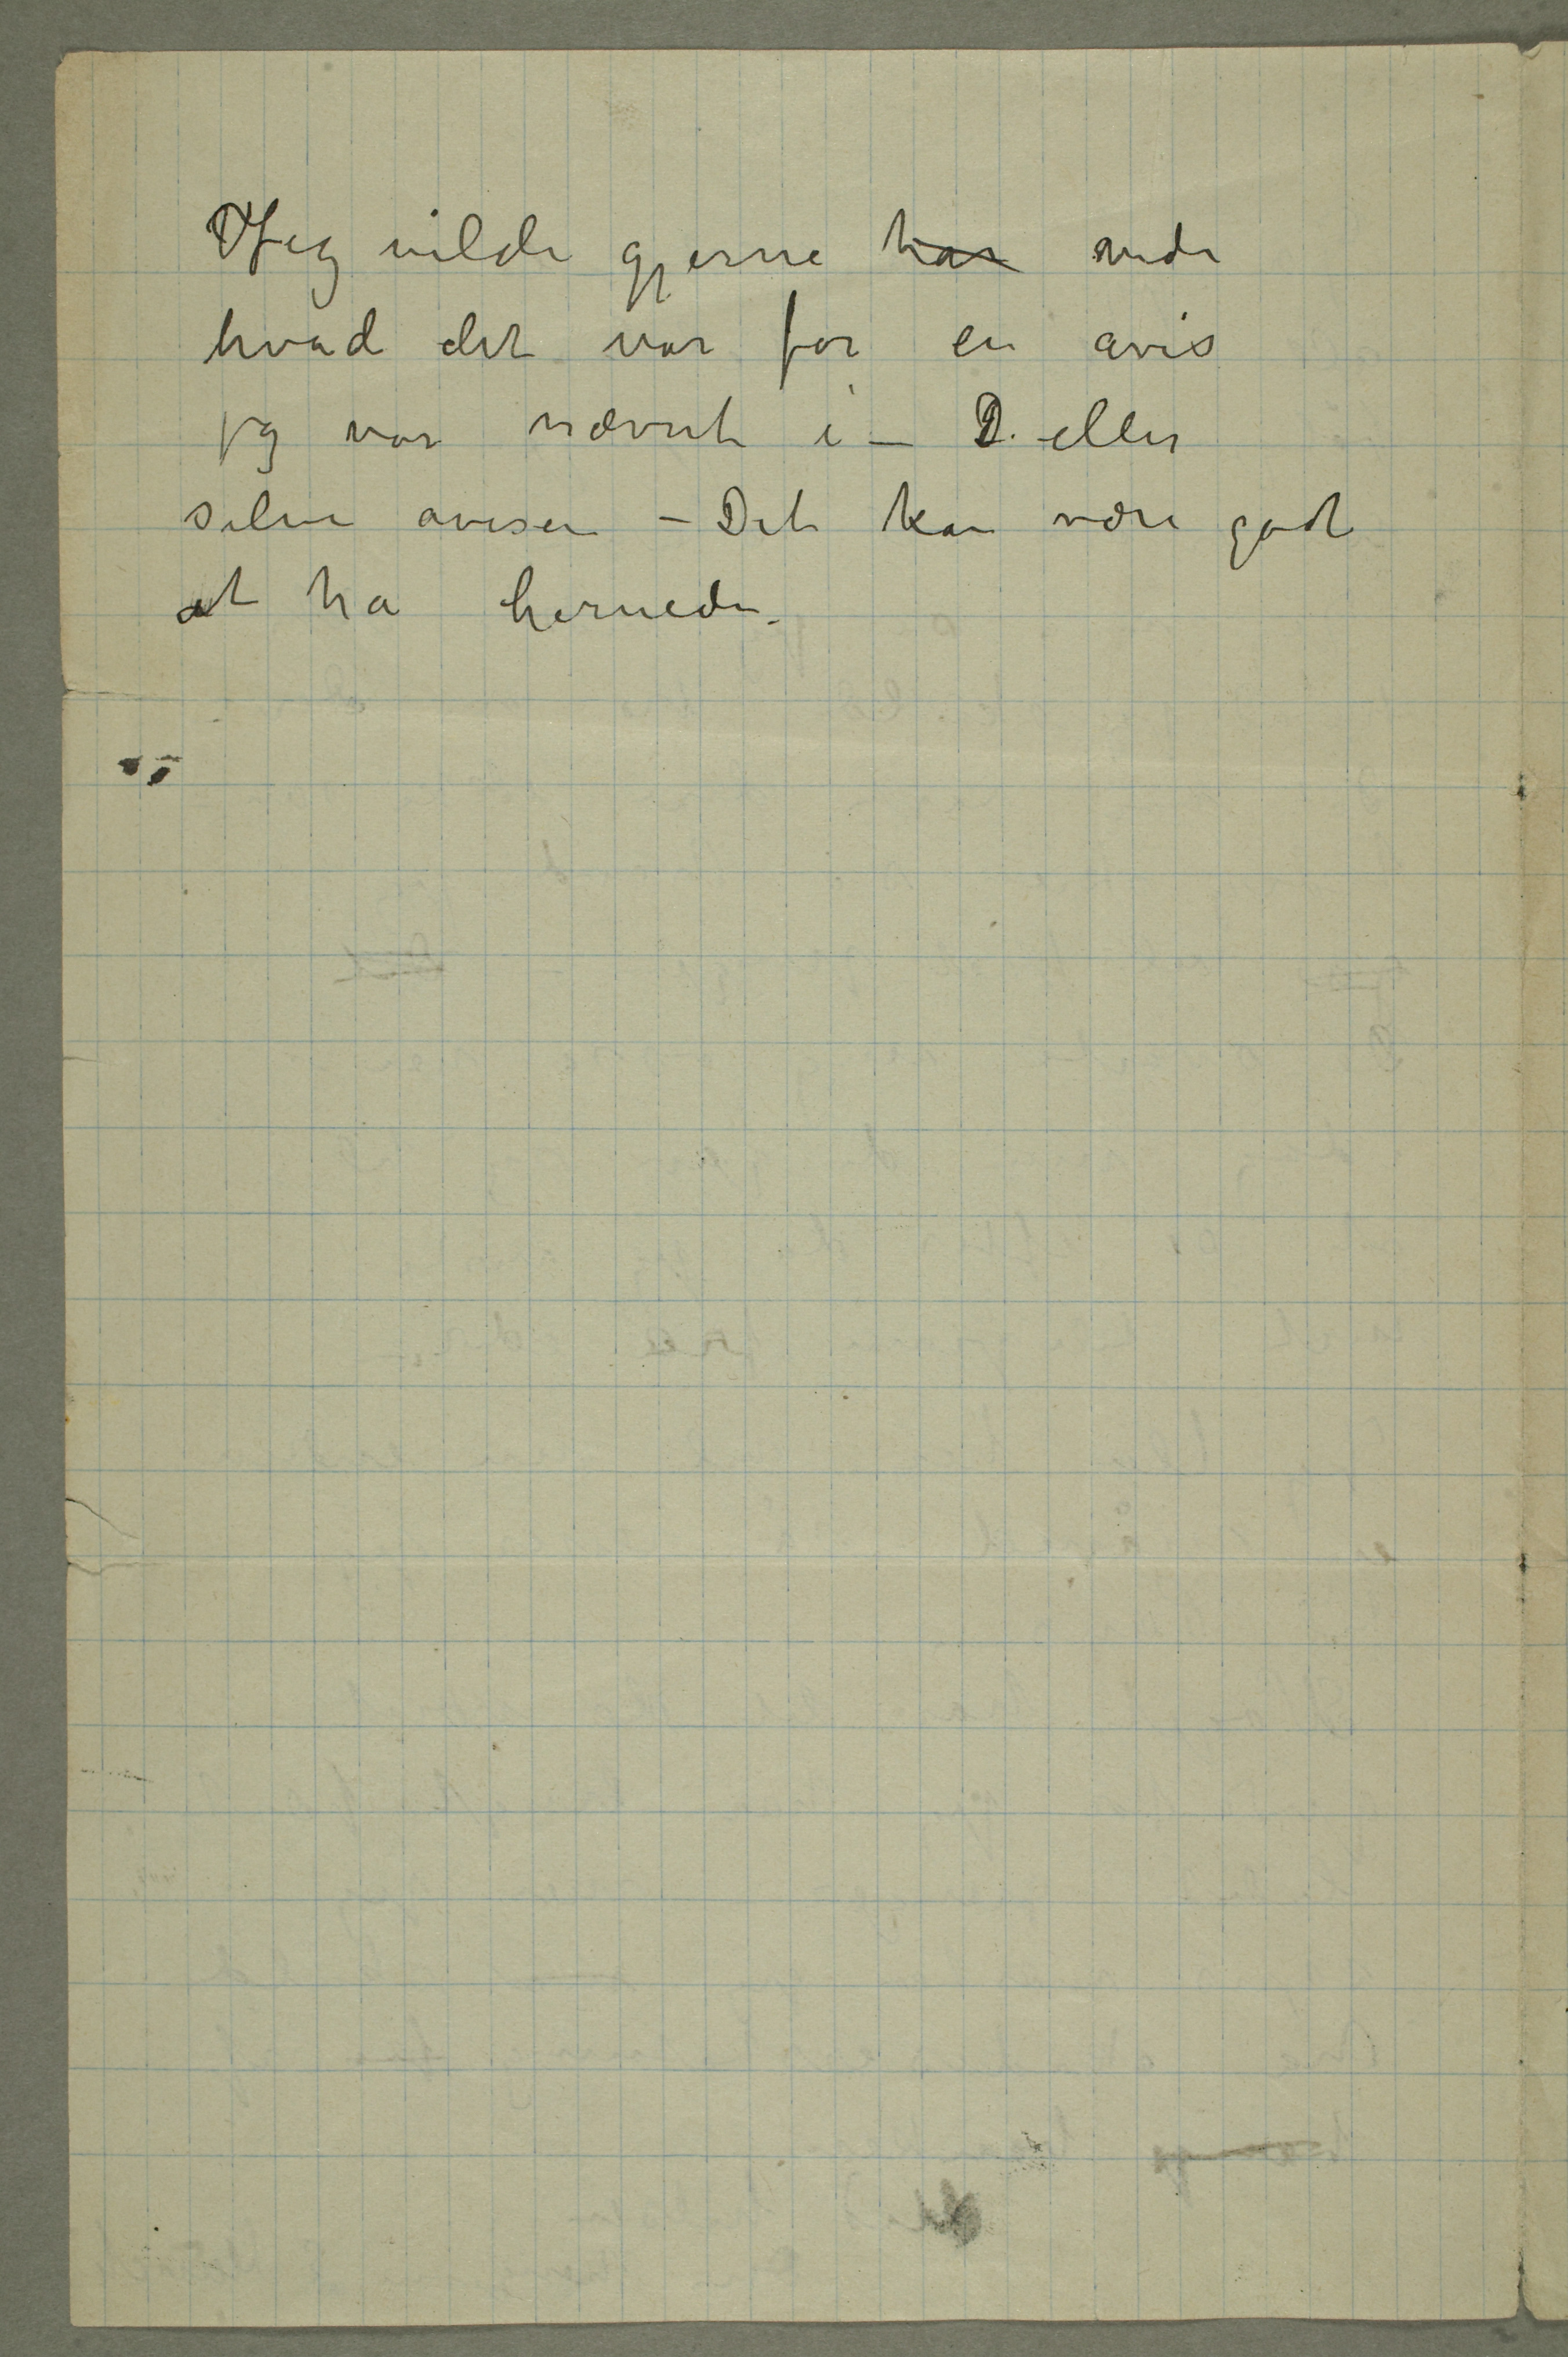 Jeg vilde gjerne har vide
hvad det var for en avis
jeg var nævnt i – D. eller
selve avisen – Det kan være godt
at ha hernede.